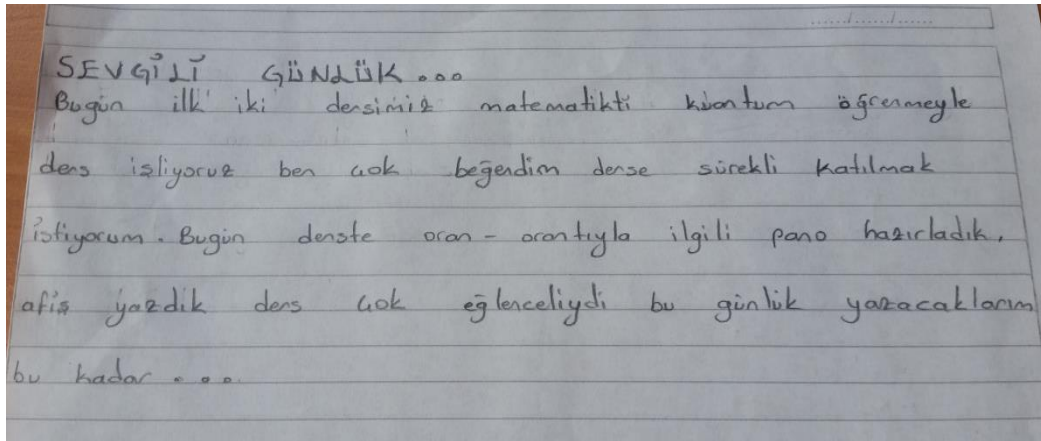 SEVGİLİ GÜNLÜK...
Bugün ilk iki dersimiz matematikti kuantum öğrenmeyle
ders işliyoruz ben çok beğendim derse sürekli katılmak
istiyorum. Bugün derste oran - orantıyla ilgili pano hazırladık,
afiş yazdık ders çok eğlenceliydi bu günlük yazacaklarım
bu kadar...